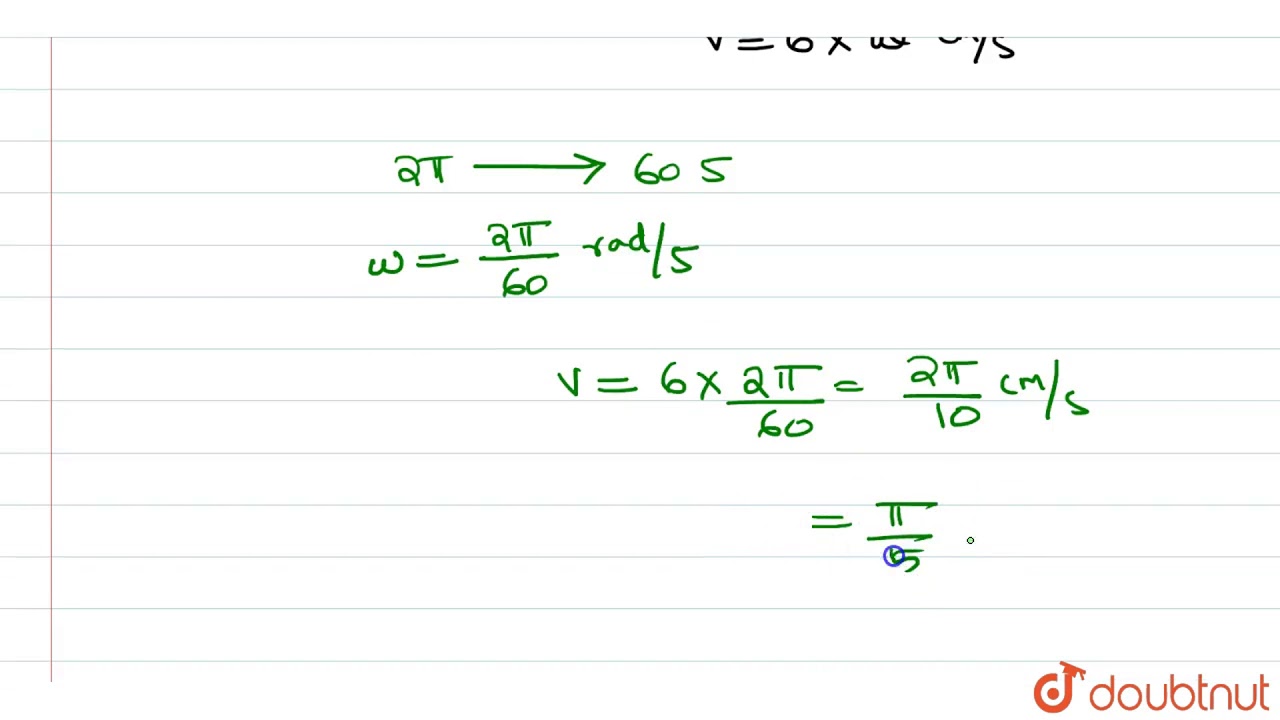 V = 6 × ω cm/s
2π → 60 s
ω = 2π/60 rad/s
V = 6 × 2π/60 = 2π/10 cm/s
= π/5
doubtnut